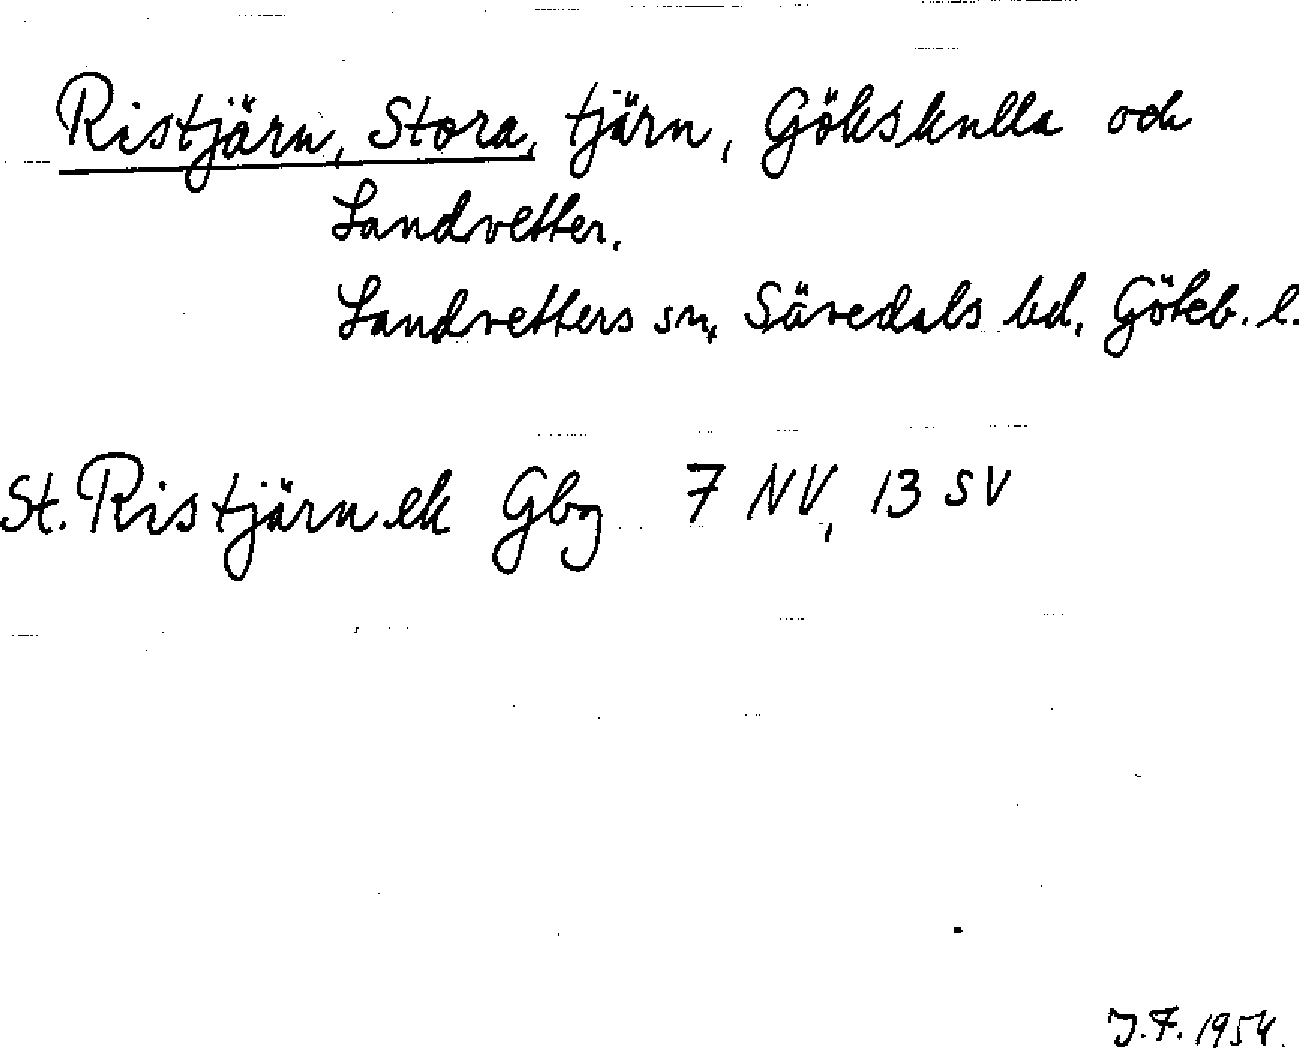 Ristjärn, Stora, tjärn, Gökskulla och
Landvetter.
Landvetters sn, Sävedals hd, Göteb. l.
St. Ristjärn ek Gbg 7 NV, 13 SV
J.F. 1954.